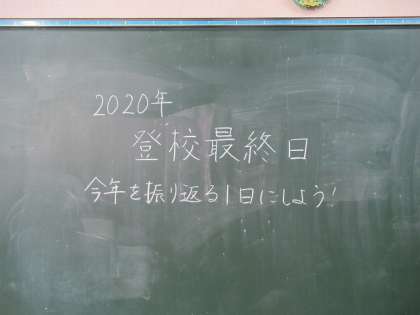 2020年
登校最終日
今年を振り返る1日にしよう!